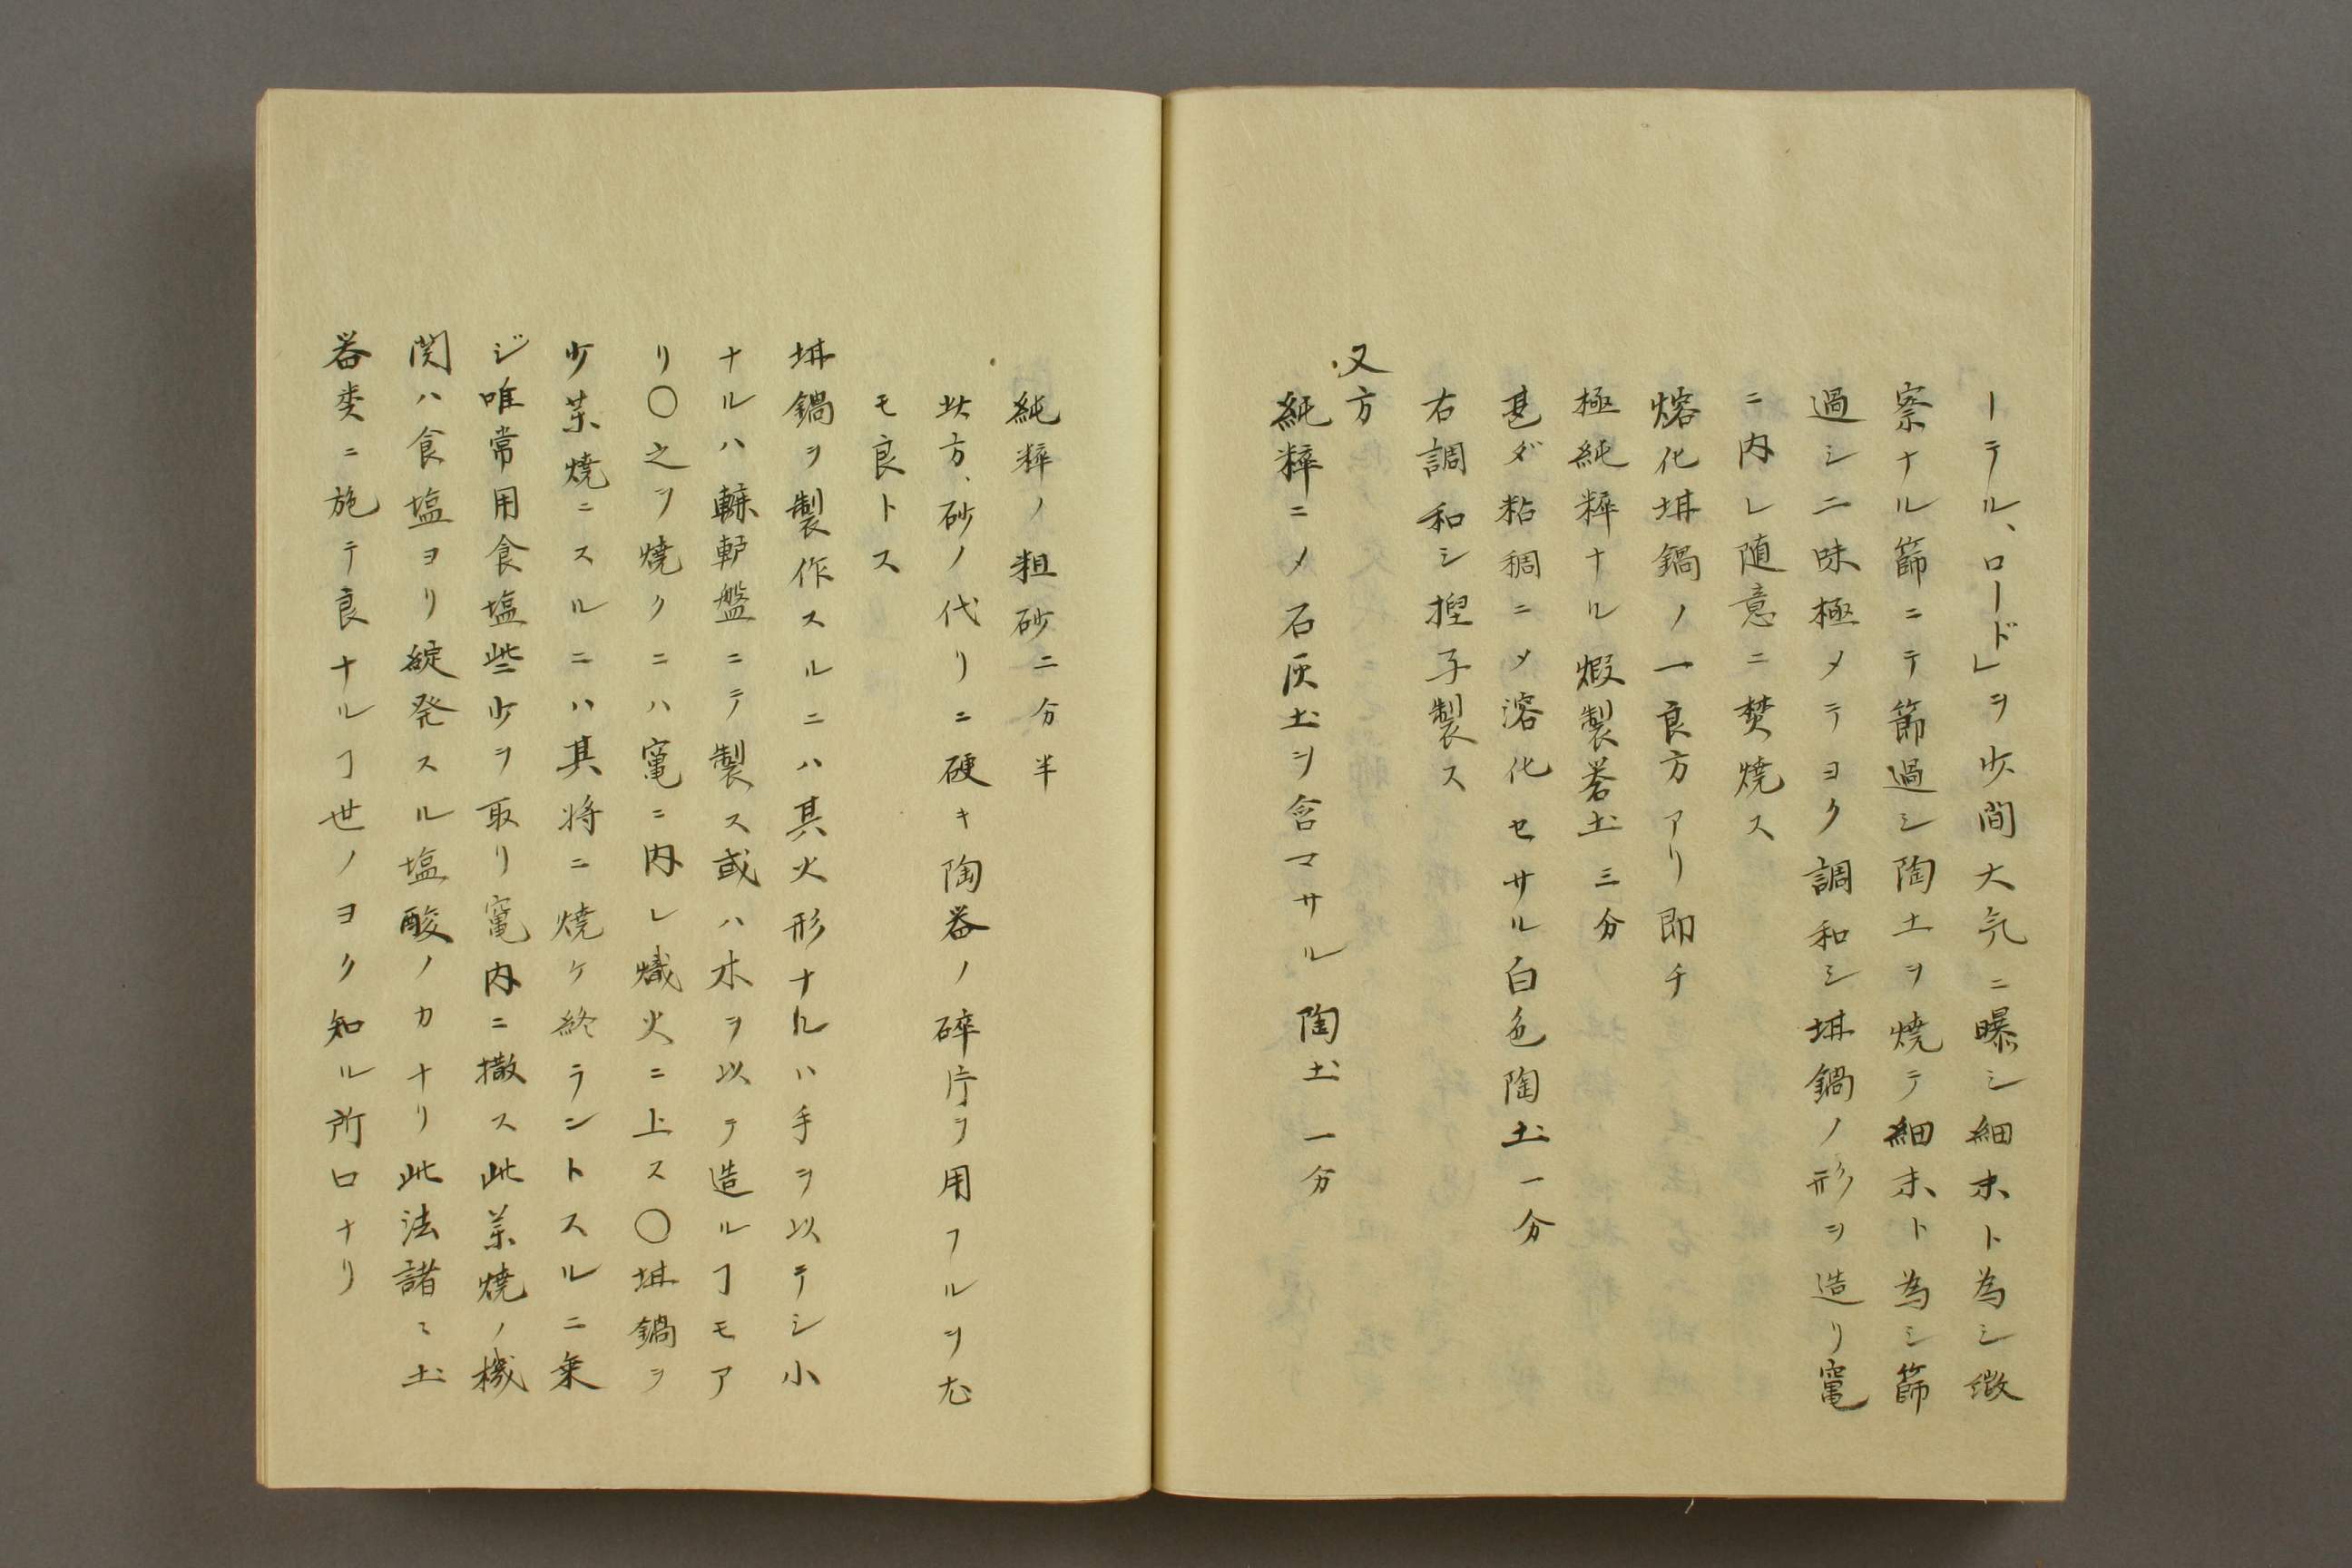 ーテル、ロード」ヲ少間大気ニ曝シ細末ト為シ微
密ナル篩ニテ篩過シ陶土ヲ焼テ細末ト為シ篩
過シ二味極メテヨク調和シ坩鍋ノ形ヲ造リ竃
ニ内レ随意ニ焚焼ス
熔化坩鍋ノ一良方アリ即チ
極純粹ナル煆製器土三分
甚ダ粘稠ニメ溶化セサル白色陶土一分
右調和シ揑子製ス
又方
純粹ニメ石灰土ヲ含マサル陶土一分
純粹ノ粗砂二分半
此方、砂ノ代リニ硬キ陶器ノ碎片ヲ用フルヲ尤
モ良トス
坩鍋ヲ製作スルニハ其火形ナルハ手ヲ以テシ小
ナルハ轆轤盤ニテ製ス或ハ木ヲ以テ造ルヿモア
リ〇之ヲ焼クニハ竃ニ内レ熾火ニ上ス〇坩鍋ヲ
少焼ニスルニハ其将ニ焼ケ終ラントスルニ乗
ジ唯常用食塩些少ヲ取リ竃内ニ撒ス此焼ノ機
関ハ食塩ヨリ綻発スル塩酸ノカナリ此法諸〻土
器类ニ施テ良ナルヿ世ノヨク知ル所口ナリ